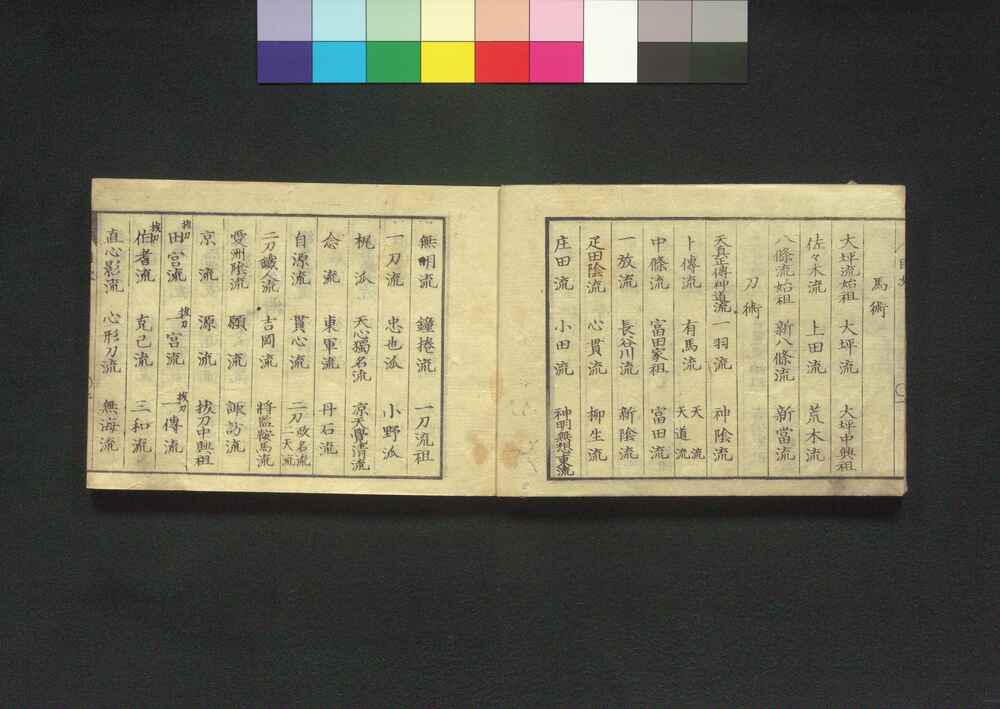 馬術
大坪流始祖 大坪流 大坪中興祖
佐々木流 上田流 荒木流
八條流始祖 新八條流 新當流
刀術
天真正傳神道流 一羽流 神陰流
卜傳流 有馬流 天流 天道流
中條流 富田家祖 富田流
一放流 長谷川流 新陰流
疋田陰流 心貫流 柳生流
庄田流 小田流 神明無想東流
無明流 鐘捲流 一刀流祖
一刀流 忠也派 小野派
梶派 天心獨名流 京天覺清流
念流 東軍流 丹石流
自源流 貫心流 二刀政名流 一天流
二刀鐵人流 吉岡流 將監鞍馬流
愛洲陰流 願流 諏訪流
京流 源流 拔刀中興祖
拔刀田宮流 拔刀一宮流 拔刀一傳流
拔刀伯耆流 克己流 三和流
直心影流 心形刀流 無海流